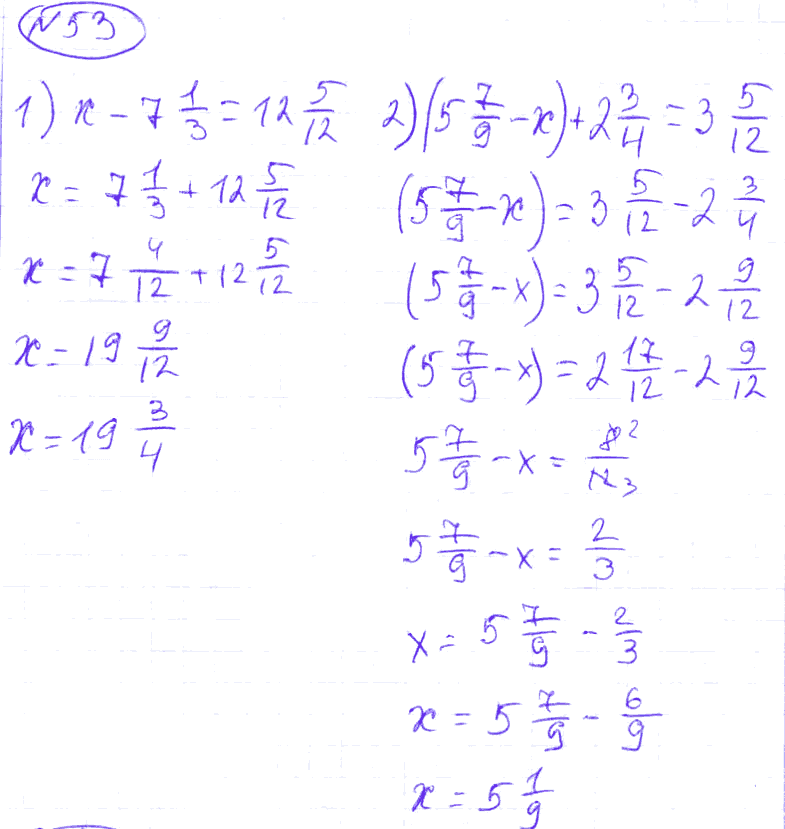 №53
1) x - 7 1/3 = 12 5/12
x = 7 1/3 + 12 5/12
x = 7 4/12 + 12 5/12
x = 19 9/12
x = 19 3/4
2) (5 7/9 - x) + 2 3/4 = 3 5/12
(5 7/9 - x) = 3 5/12 - 2 3/4
(5 7/9 - x) = 3 5/12 - 2 9/12
(5 7/9 - x) = 2 17/12 - 2 9/12
5 7/9 - x = 8 2/12 3
5 7/9 - x = 2/3
x = 5 7/9 - 2/3
x = 5 7/9 - 6/9
x = 5 1/9